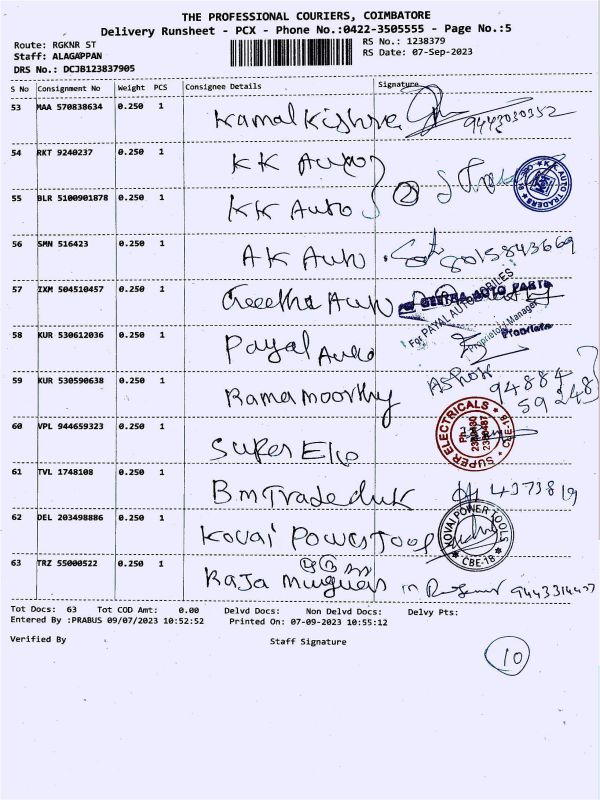 THE PROFESSIONAL COURIERS, COIMBATORE
Delivery Runsheet - PCX - Phone No.:0422-3505555 - Page No.:5
Route: RGKNR ST
RS No.: 1238379
Staff: ALAGAPPAN
RS Date: 07-Sep-2023
DRS No.: DCJB123837905
S No Consignment No Weight PCS Consignee Details Signature
53 MAA 570838634 0.250 1 Kamal Kishore 9443030352
54 RKT 9240237 0.250 1 KK Auto
K.K. AUTO TRADERS
55 BLR 5100901878 0.250 1 KK Auto 2
56 SMN 516423 0.250 1 AK Auto 8015843669
57 IXM 504510457 0.250 1 Geetha Auto
For GEETHA AUTO PARTS
For PAYAL AUTOMOBILES
Proprietor/Manager
58 KUR 530612036 0.250 1 Payal Auto
59 KUR 530590638 0.250 1 Ramamoorthy Ashok 94884
59248
60 VPL 944659323 0.250 1 Super Ele
SUPER ELECTRICALS CBE-18
61 TVL 1748108 0.250 1 B.M Trade 4373819
62 DEL 203498886 0.250 1 Kovai Power Tool
KOVAI POWER TOOLS CBE-18
63 TRZ 55000522 0.250 1 Raja
Tot Docs: 63 Tot COD Amt: 0.00 Delvd Docs: Non Delvd Docs: Delvy Pts:
Entered By :PRABUS 09/07/2023 10:52:52 Printed On: 07-09-2023 10:55:12
Verified By Staff Signature
10